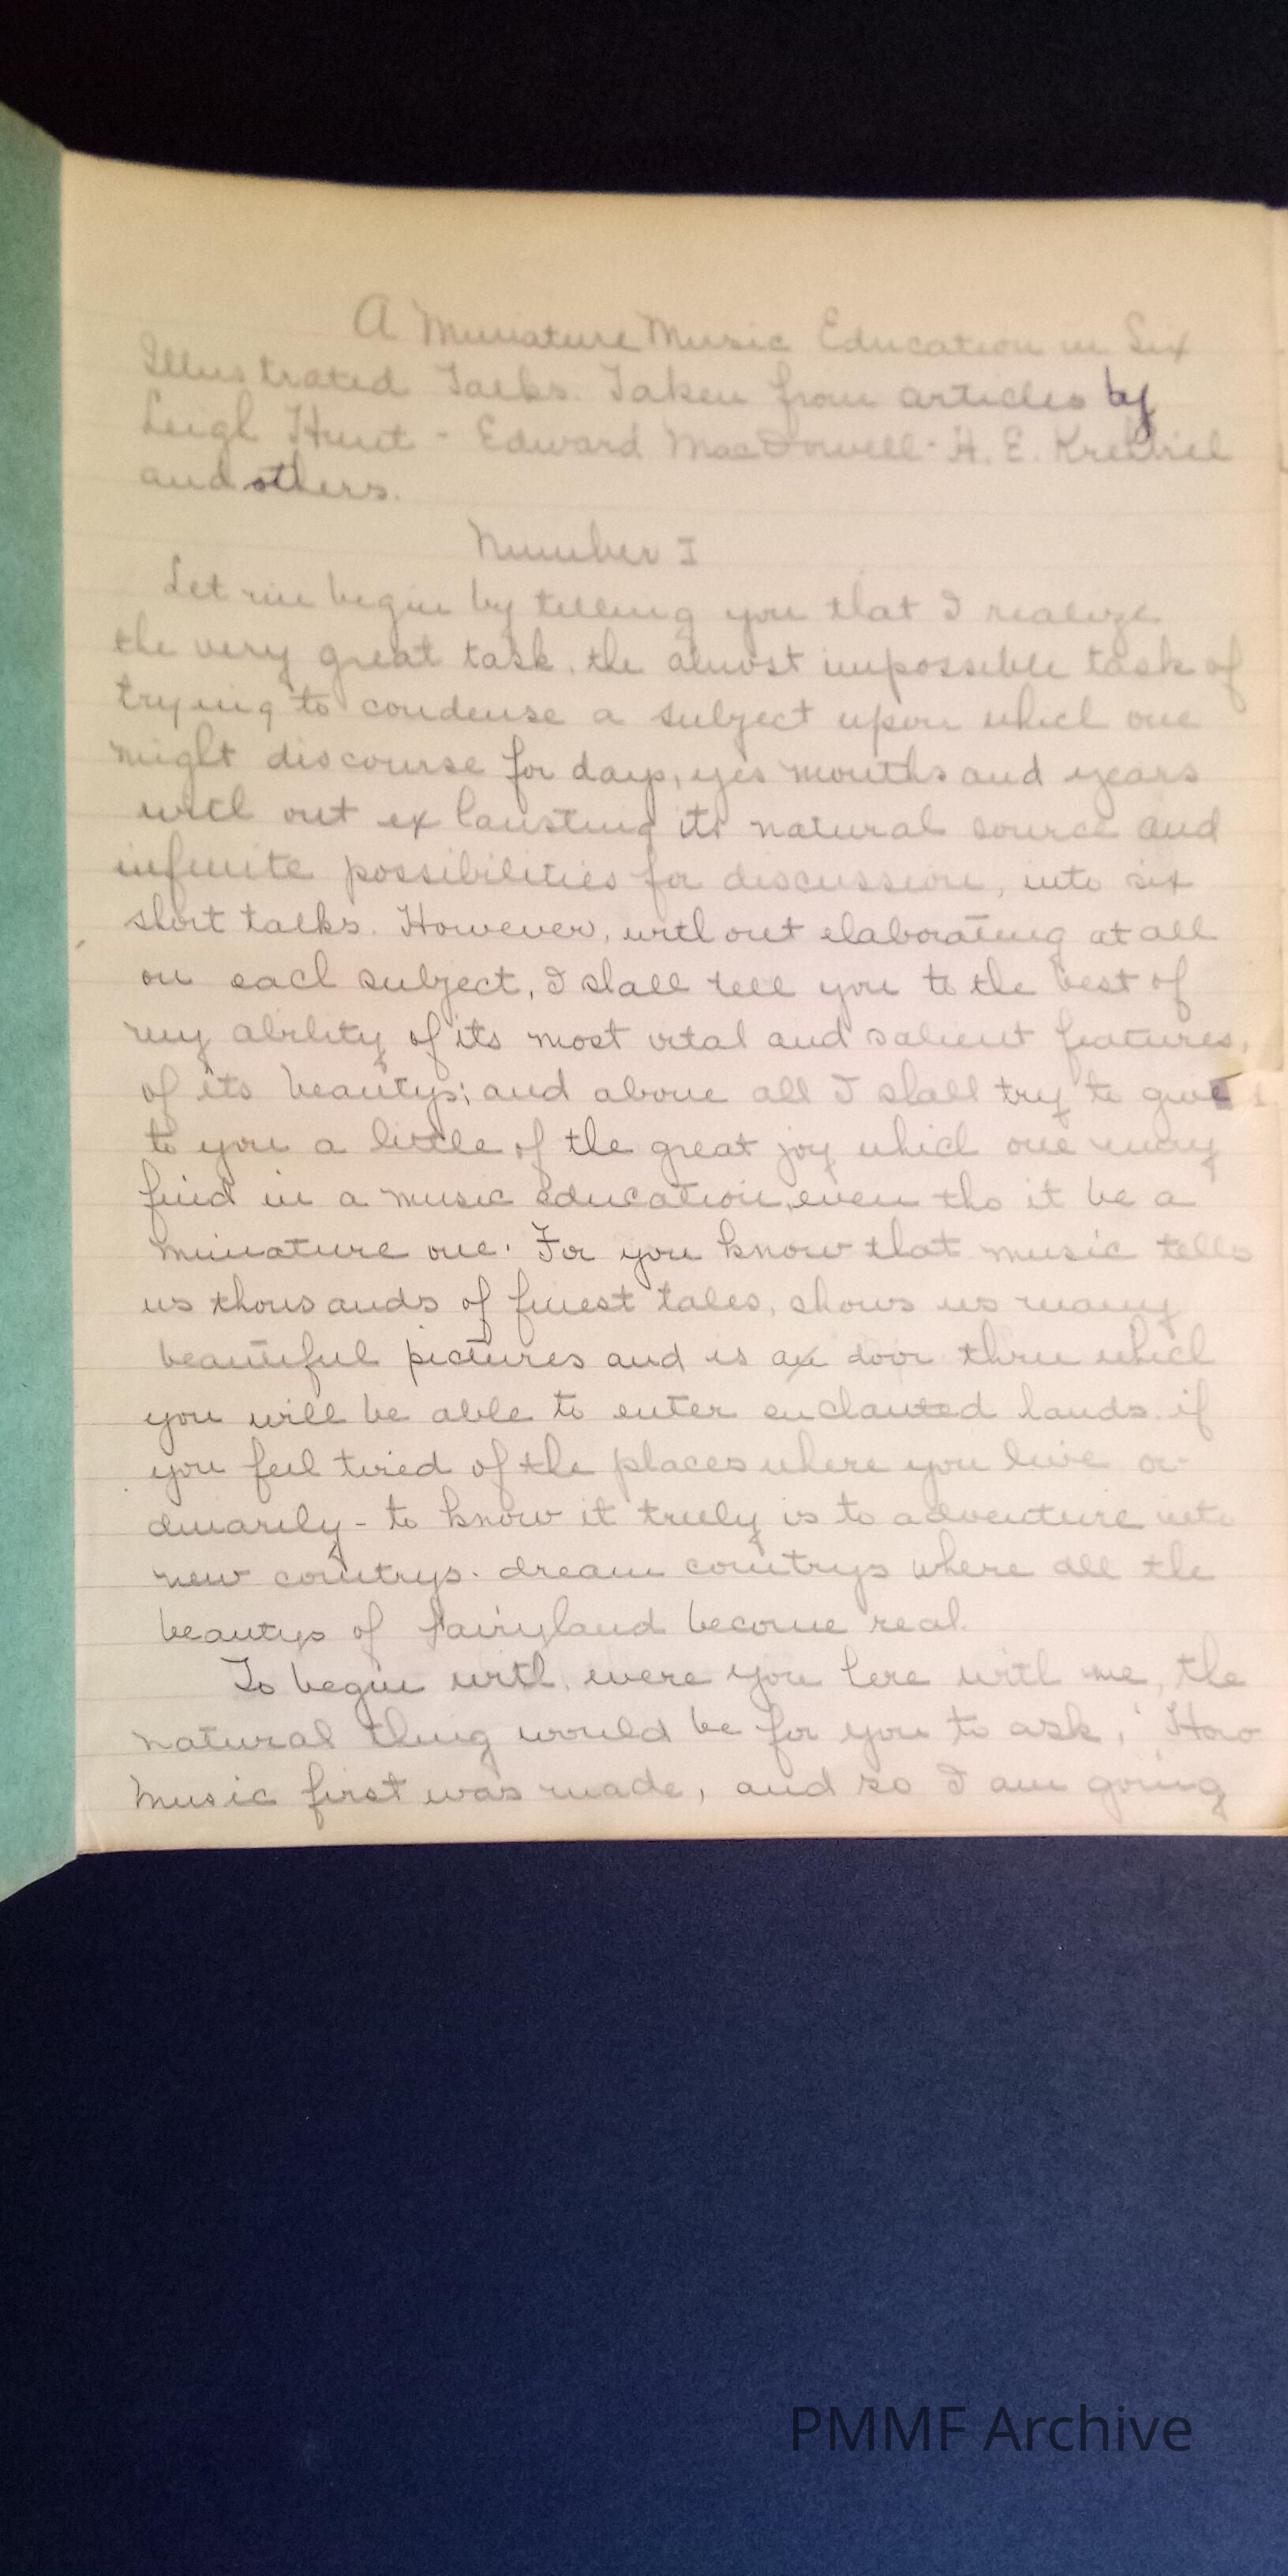 A Miniature Music Education in Six
Illustrated Talks. Taken from articles by
Leigh Hunt - Edward MacDowell - H. E. Krehbiel
and others.
Number I
Let me begin by telling you that I realize
the very great task, the almost impossible task of
trying to condense a subject upon which one
might discourse for days, yes months and years
with out exhausting its natural source and
infinite possibilities for discussion, into six
short talks. However, without elaborating at all
on each subject, I shall tell you to the best of
my ability of its most vital and salient features,
of its beautys; and above all I shall try to give
to you a little of the great joy which one may
find in a music education, even tho it be a
miniature one. For you know that music tells
us thousands of finest tales, shows us many
beautiful pictures and is a door thru which
you will be able to enter enchanted lands if
you feel tired of the places where you live or-
dinarily - to know it truly is to adventure into
new countrys. dream countrys where all the
beautys of fairyland become real.
To begin with, were you here with me, the
natural thing would be for you to ask, "How
Music first was made, and so I am going
PMMF Archive